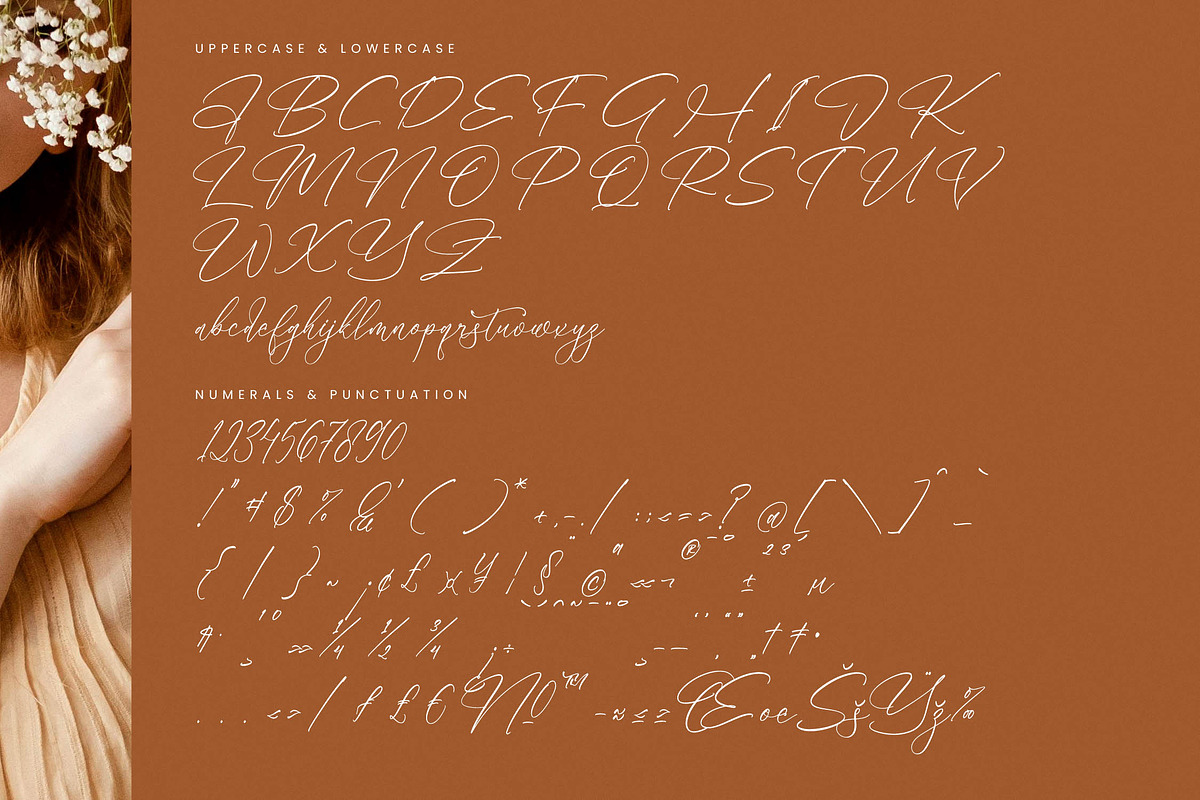 UPPERCASE & LOWERCASE
ABCDEFGHIJK
LMNOPQRSTUV
WXYZ
abcdefghijklmnopqrstuvwxyz
NUMERALS & PUNCTUATION
1234567890
!"#$%&'()*+,-./:;<=>?@[\]^_`
{|}~¡¢£¤¥¦§¨©ª«¬®¯°±²³´µ
¶·¸¹º»¼½¾¿÷–—‘’‚“”„†‡•
...‹›⁄ƒ₤€№™−≈≤≥ŒœŠšŸž‰